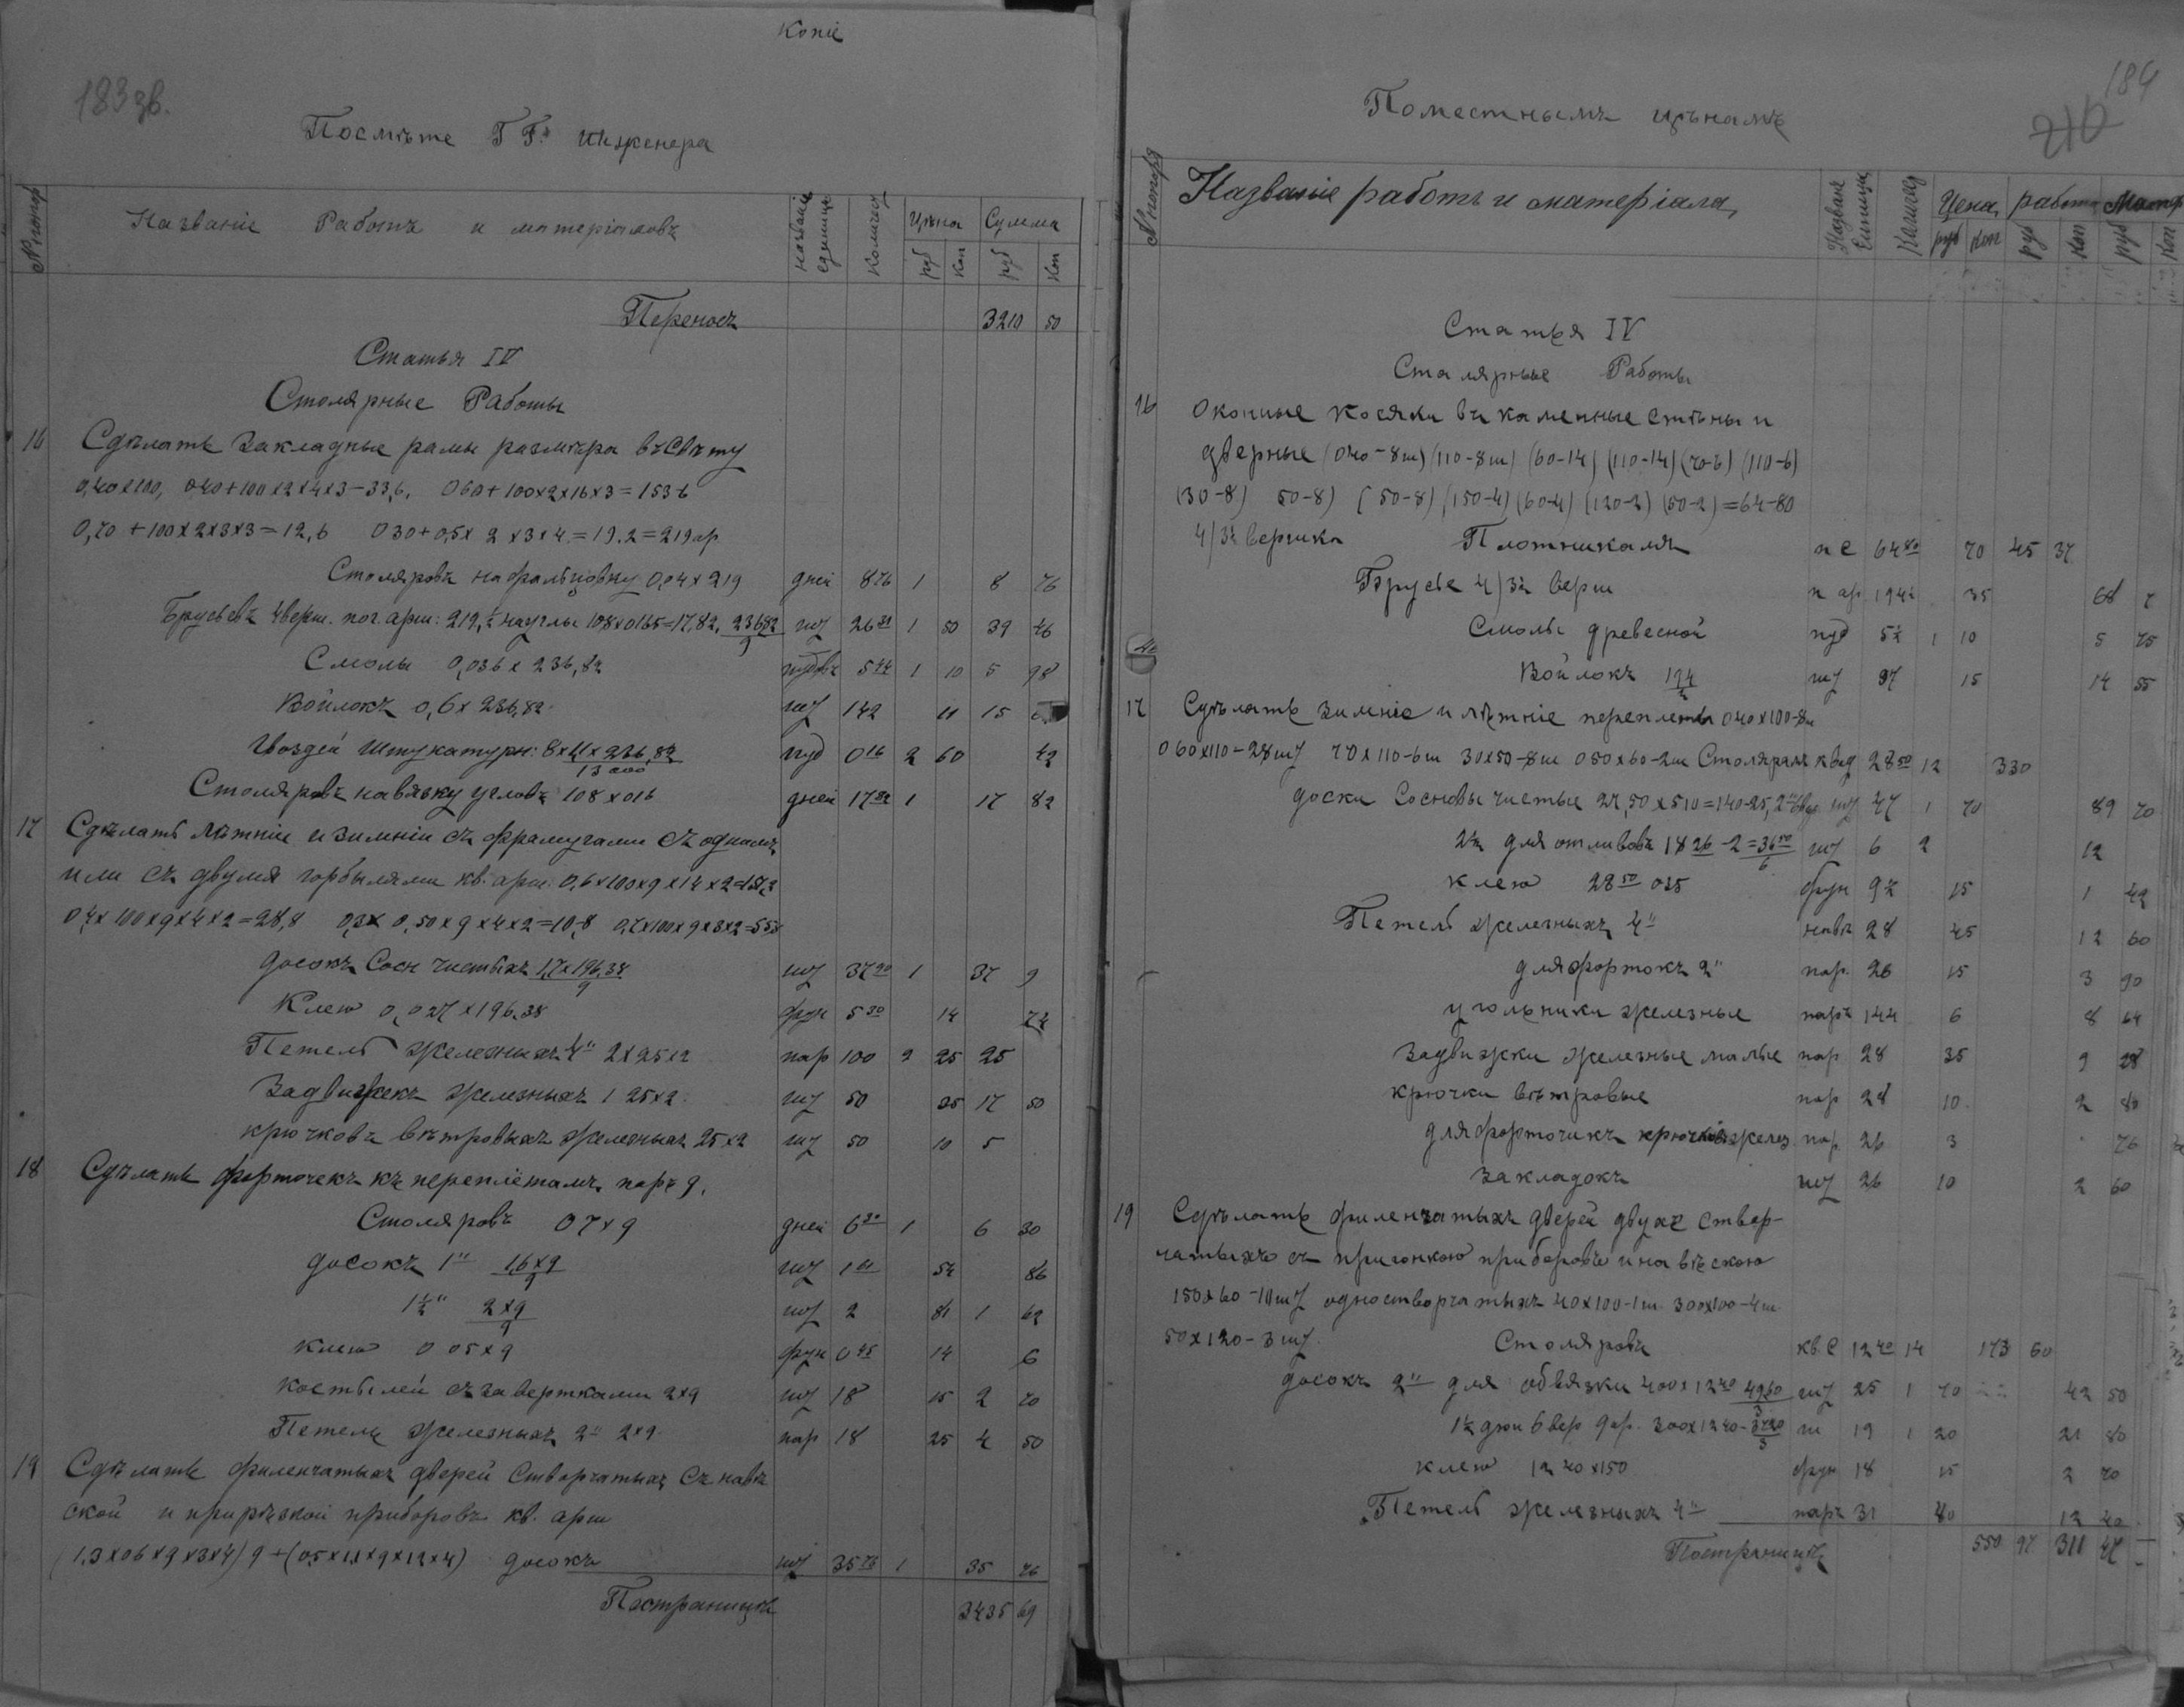 Копіе
183 зв.
Посмѣте Г Гна Инженера
№ потор
Названіе Работъ и матеріаловъ
Названіе единицы
Количест
Цѣна
Сумма
руб
Коп
руб
Коп
Переносъ 3210 50
Статья IV
Столярные Работы
16 Сдѣлать Закладные рамы размѣра въ Свѣту
0,40x100, 040+100x2x4x3-33,6. 060+100x2x16x3=153 6
0,70+100x2x3x3=12,6 030+0,5x2x3x4=19.2=219 ар
Столяровъ на фальцовку 0,04x219 дней 8 76 1 8 76
Брусьевъ 4 верш. пог. арш: 219, на углы 108x0165=17,82. 23682/9 шт 26 31 1 50 39 46
Смолы 0,036x236,82 пудовъ 5 44 1 10 5 98
Войлокъ 0,6x236,82 шт 142 11 15
Гвоздей Штукатурн: 8x11x236,82/13000 пуд 0 16 2 60 42
Столяровъ навязку угловъ 108x016 дней 17 82 1 17 82
17 Сдѣлать Лѣтніи и зимніи съ фрамугами съ однимъ
или съ двумя горбылями кв. арш. 0,6x100x9x14x2=151,2
0,4x100x9x4x2=28,8 0,3x0,50x9x4x2=10,8 0,7x100x9x3x2=5,58
Досокъ Сосн чистыхъ 1,7x196,38/9 шт 37 90 1 37 9
Клею 0,027x196,38 фун 5 30 14 74
Петель желѣзныхъ 4" 2x25x2 пар 100 2 25 25
Задвижекъ желѣзныхъ 1 25x2 шт 50 35 17 50
крючковъ вѣтровыхъ желѣзныхъ 25x2 шт 50 10 5
18 Сдѣлать форточекъ къ переплётамъ паръ 9.
Столяровъ 07x9 дней 6 30 1 6 30
досокъ 1" 1,6x9/9 шт 1 61 54 86
1½" 2x9/9 шт 2 81 1 62
клею 0 05x9 фун 0 45 14 6
костылей съ завертками 2x9 шт 18 15 2 70
Петель желѣзныхъ 2" 2x9 пар 18 25 4 50
19 Сдѣлать филенчатыхъ дверей Створчатыхъ съ навѣ
ской и прирѣзкой приборовъ кв. арш
(1.3x06x9x3x4)9+(05x1.1x9x12x4) досокъ шт 35 76 1 35 76
Пострáницѣ 3435 69
184
210
Поместнымъ цѣнамъ
№ потор
Названіе работъ и матеріала
Назване Еиницы
Каличед
Цена
работа
Матер
руб
коп
руб
коп
руб
коп
Статья IV
Сталярные Работы
16 Оконные косяки въ каменные стѣны и
дверные (040-8ш) (110-8ш) (60-14) (110-14) (70-6) (110-6)
(30-8) 50-8) (50-8) (150-4) (60-4) (120-2) (50-2)=64-80
4/3½ вершка Плотникамъ п с 64 80 70 45 37
Брусье 4/3½ верш п ар 194½ 35 68 7
Смолы древесной пуд 5½ 1 10 5 75
Войлокъ 194/2 шт 97 15 14 55
17 Сдѣлать зимніе и лѣтніе переплеты 040x100-8ш
060x110-28шт 70x110-6ш 30x50-8ш 050x60-2ш Столярамъ квад 28 50 12 330
доски Сосновы чистые 27,50x510=140-25, шт 47 1 70 89 70
2½ для отливовъ 18 26-2=36 50/6 шт 6 2 12
клею 28 50 035 фун 9½ 15 1 42
Петель желѣзныхъ 4" 28 45 12 60
для фортокъ 2" пар. 26 15 3 90
угольники желѣзные паръ 144 6 8 64
Задвижки желѣзные малые пар 28 35 9 28
крючки вѣтровые пар 28 10 2 80
для форточикъ крючков желез пар 26 3 76
закладокъ шт 26 10 2 60
19 Сдѣлать филенчатыхъ дверей двухъ створ-
чатыхъ съ пригонкою приборовъ и навѣскою
150x60-11шт одностворчатыхъ 40x100-1ш. 300x100-4ш
50x120-3шт. Столяровъ кв. С 12 40 14 173 60
досокъ 2" для обвязки 400x1240 4960/3 шт 25 1 70 42 50
1½ дюи 6 вер 9 ар. 300x1240-3720/3 ш 19 1 20 21 80
клею 12 40x150 фун 18 15 2 70
Петель желѣзныхъ 4" паръ 31 40 12 40
Постраницѣ 550 97 311 47